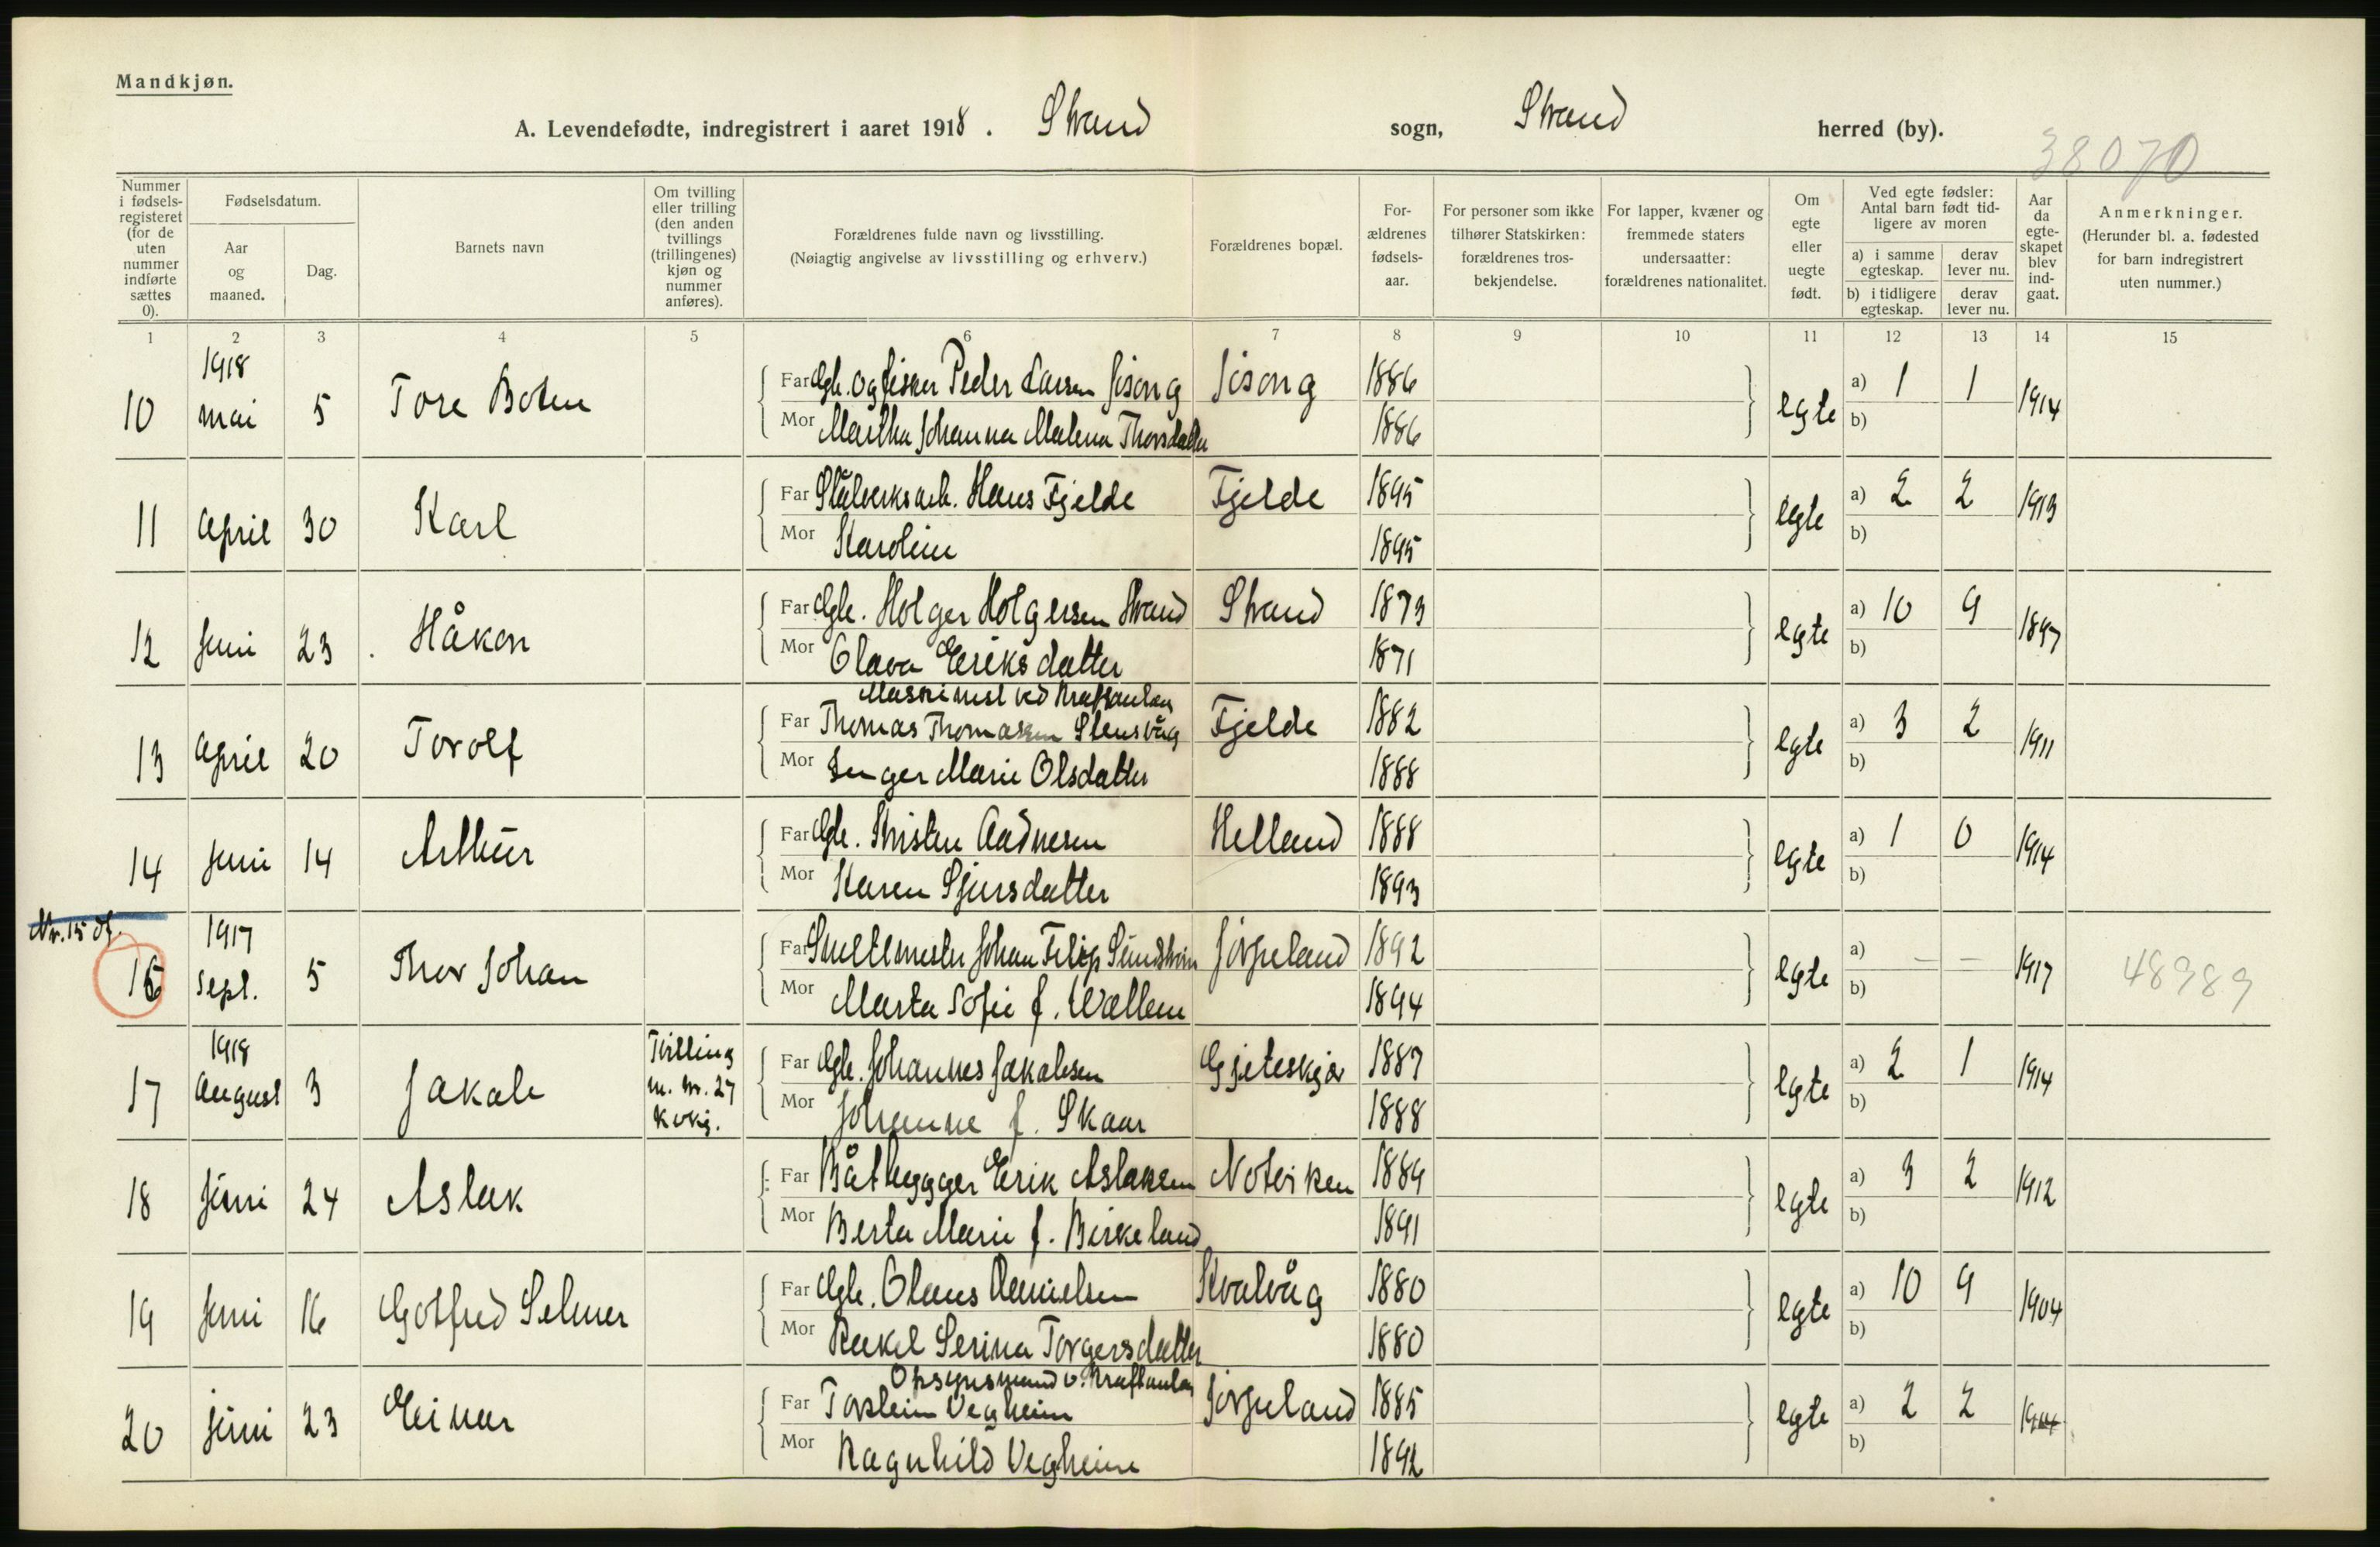 Mandkjøn.
A. Levendefødte, indregistrert i aaret 1918. Strand sogn, Strand herred (by).
38070
Nummer i fødsels-registeret (for de uten nummer indførte sættes 0).
Fødselsdatum.
Aar og maaned.
Dag.
Barnets navn
Om tvilling eller trilling (den anden tvillings (trillingenes) kjøn og nummer anføres).
Forældrenes fulde navn og livsstilling.
(Nøiagtig angivelse av livsstilling og erhverv.)
Forældrenes bopæl.
For-ældrenes fødsels-aar.
For personer som ikke tilhører Statskirken: forældrenes tros-bekjendelse.
For lapper, kvæner og fremmede staters undersaatter: forældrenes nationalitet.
Om egte eller uegte født.
Ved egte fødsler: Antal barn født tid-ligere av moren
a) i samme egteskap. derav lever nu.
b) i tidligere egteskap. derav lever nu.
Aar da egte-skapet blev ind-gaat.
Anmerkninger.
(Herunder bl. a. fødested for barn indregistrert uten nummer.)
1 2 3 4 5 6 7 8 9 10 11 12 13 14 15
10 1918 mai 5 Tore Far Gbr. og fisker Peder Larsen 1886 egte a) 1 1 1914
Mor Martha Johanna Malena Thorsdatter 1886 b)
11 April 30 Karl Far Stålverksarb. Hans Fjelde Fjelde 1895 egte a) 2 2 1913
Mor Karoline 1895 b)
12 Juni 23 Håkon Far Gbr. Holger Holgersen Strand Strand 1873 egte a) 10 9 1897
Mor Olava Eriksdatter 1871 b)
Maskinist ved Kraftanlæg
13 April 20 Torolf Far Thomas Thomassen Stensvåg Fjelde 1882 egte a) 3 2 1911
Mor Inger Marie Olsdatter 1888 b)
14 Juni 14 Arthur Far Gbr. Kristen Aadnesen Helland 1888 egte a) 1 0 1914
Mor Karen Sjursdatter 1893 b)
Nr. 15 df.
16 1917 Sept. 5 Thor Johan Far Smeltemester Johan Filip Sundstrøm Jørpeland 1892 egte a) - - 1917 48989
Mor Marta Sofie f. Wallem 1894 b)
17 1918 August 3 Jakob Tvilling m. nr. 27 kvkj. Far Gbr. Johannes Jakobsen Gjeteskjær 1887 egte a) 2 1 1914
Mor Johanne f. Skaar 1888 b)
18 Juni 24 Aslak Far Båtbygger Erik Aslaksen Notviken 1884 egte a) 3 2 1912
Mor Berta Marie f. Birkeland 1891 b)
19 Juni 16 Gotfred Selmer Far Gbr. Olaus Danielsen Kvalvåg 1880 egte a) 10 9 1904
Mor Rakel Serina Torgersdatter 1880 b)
Opsynsmand v. Kraftanlæg
20 juni 23 Einar Far Torstein Vegheim Jørpeland 1885 egte a) 2 2
Mor Ragnhild Vegheim 1892 b)